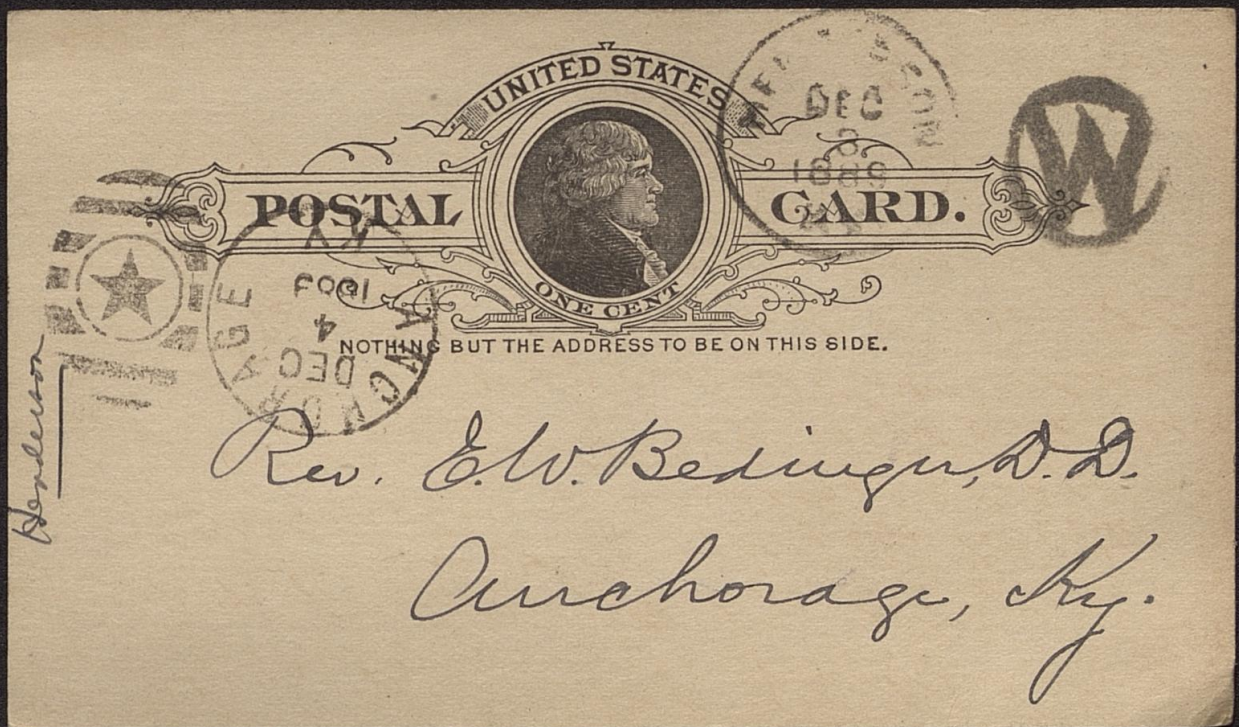 UNITED STATES
POSTAL CARD.
ONE CENT
NOTHING BUT THE ADDRESS TO BE ON THIS SIDE.
DEC
3
1889
W
ANCHORAGE
KY
DEC
4
Henderson
Rev. E. W. Bedinger, D. D.
Anchorage, Ky.